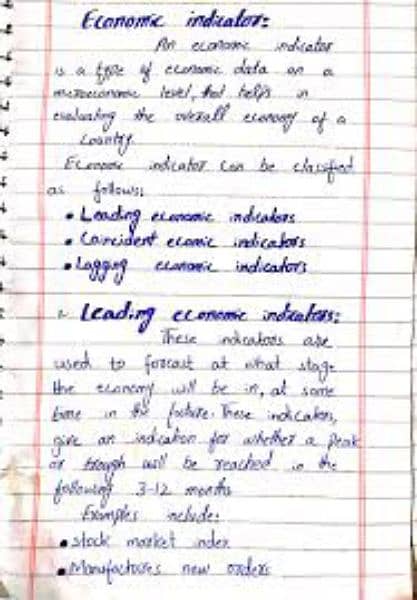 Economic indicators:
An economic indicator
is a type of economic data on a
microeconomic level, that helps in
evaluating the overall economy of a
country.
Economic indicator can be classified
as follows:
• Leading economic indicators
• Coincident economic indicators
• Lagging economic indicators
Leading economic indicators:
These indicators are
used to forcast at what stage
the economy will be in, at some
time in the future. These indicators,
give an indication for whether a peak
or trough will be reached in the
following 3-12 months
Examples include:
• stock market index
• Manufactores new orders